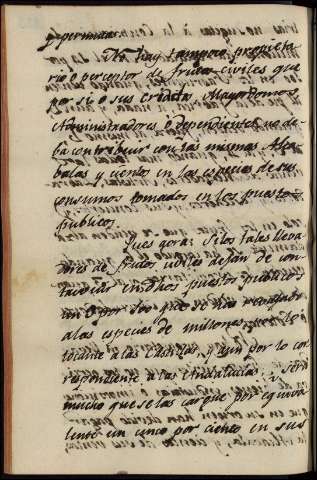 y permutas.
No hay tampoco propieta
rio ó perceptor de frutos civiles que
por si o sus Criados, Mayordomos,
Administradores ó dependientes no de
ba contribuir con las mismas Alca
balas y cientos en las especies de sus
consumos tomados en los puestos
publicos.
Pues ahora: Si los tales lleva
dores de frutos civiles dejan de con
en dhos puestos publicos
un 8 por 100 que se les
a las especies de millones por lo
tocante a las Castillas, y aun por lo cor
respondiente a las Andalucias, será
mucho que se les cargue por equiva
lente un cinco por ciento en sus